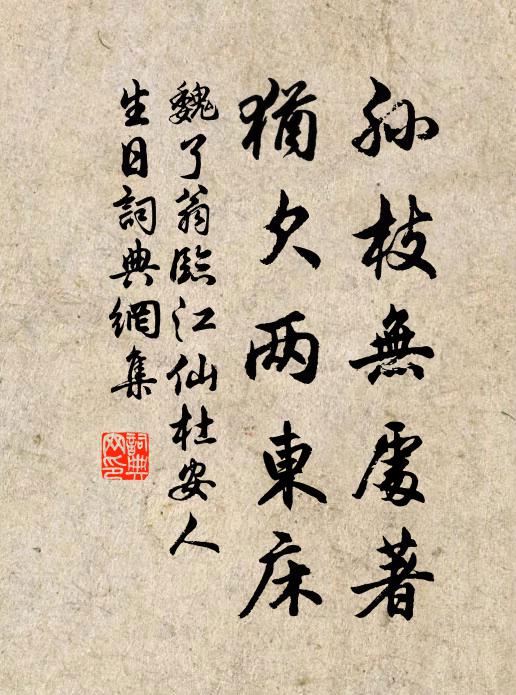 孙枝無處著
猶欠两東床
魏了翁臨江仙杜安人
生日詞典網集
詞典網印